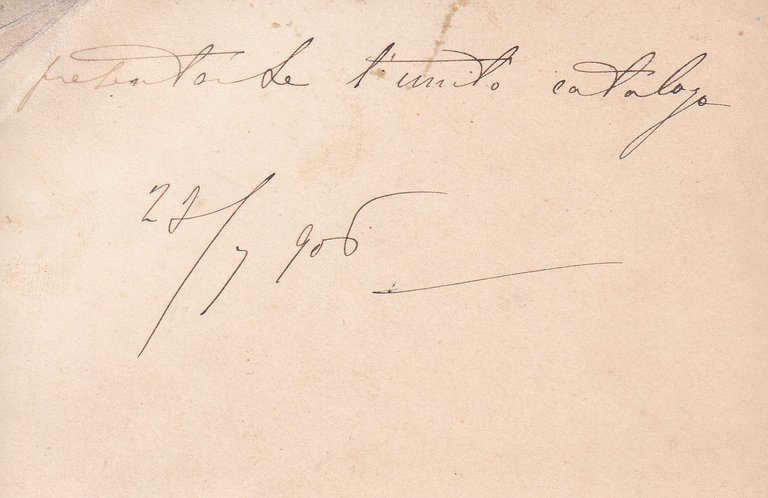 presentarvi l'unito catalogo
23/7 906